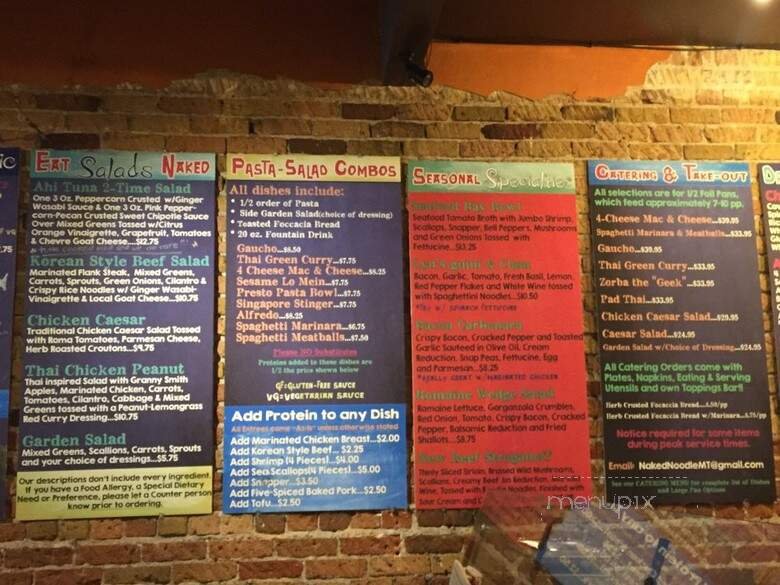 Eat Salads Naked
Ahi Tuna 2-Time Salad
One 3 Oz. Peppercorn Crusted w/Ginger
Wasabi Sauce & One 3 Oz. Pink Pepper-
corn-Pecan Crusted Sweet Chipotle Sauce
Over Mixed Greens Tossed w/Citrus
Orange Vinaigrette, Grapefruit, Tomatoes
& Chevre Goat Cheese...$12.75
Korean Style Beef Salad
Marinated Flank Steak, Mixed Greens,
Carrots, Sprouts, Green Onions, Cilantro &
Crispy Rice Noodles w/ Ginger Wasabi-
Vinaigrette & Local Goat Cheese...$10.75
Chicken Caesar
Traditional Chicken Caesar Salad Tossed
with Roma Tomatoes, Parmesan Cheese,
Herb Roasted Croutons...$9.75
Thai Chicken Peanut
Thai inspired Salad with Granny Smith
Apples, Marinated Chicken, Carrots,
Tomatoes, Cilantro, Cabbage & Mixed
Greens tossed with a Peanut-Lemongrass
Red Curry Dressing...$10.75
Garden Salad
Mixed Greens, Scallions, Carrots, Sprouts
and your choice of dressings...$5.75
Our descriptions don't include every ingredient.
If you have a Food Allergy, a Special Dietary
Need or Preference, please let a Counter person
know prior to ordering.
Pasta-Salad Combos
All dishes include:
* 1/2 order of Pasta
* Side Garden Salad(choice of dressing)
* Toasted Foccacia Bread
* 20 oz. Fountain Drink
Gaucho...$8.50
Thai Green Curry...$7.75
4 Cheese Mac & Cheese...$8.25
Sesame Lo Mein...$7.75
Presto Pasta Bowl...$7.75
Singapore Stinger...$7.75
Alfredo...$8.25
Spaghetti Marinara...$6.75
Spaghetti Meatballs...$7.50
Please NO Substitutes
Proteins added to these dishes are
1/2 the price shown below
GF=Gluten-Free Sauce
VG=Vegetarian Sauce
Add Protein to any Dish
All Entrees come "As-Is" unless otherwise stated
Add Marinated Chicken Breast...$2.00
Add Korean Style Beef... $2.25
Add Shrimp (4 Pieces)...$4.00
Add Sea Scallops(4 Pieces)...$5.00
Add Snapper...$3.50
Add Five-Spiced Baked Pork...$2.50
Add Tofu...$2.50
Seasonal Specialties
Seafood Bay Bowl
Seafood Tomato Broth with Jumbo Shrimp,
Scallops, Snapper, Bell Peppers, Mushrooms
and Green Onions Tossed with
Fettucine...$13.25
Bacon, Garlic, Tomato, Fresh Basil, Lemon,
Red Pepper Flakes and White Wine tossed
with Spaghettini Noodles...$10.50
Bacon Carbonara
Crispy Bacon, Cracked Pepper and Toasted
Garlic Sauteed in Olive Oil, Cream
Reduction, Snap Peas, Fettucine, Egg
and Parmesan...$8.25
*REALLY GREAT W/ MARINATED CHICKEN
Romaine Wedge Salad
Romaine Lettuce, Gorgonzola Crumbles,
Red Onion, Tomato, Crispy Bacon, Cracked
Pepper, Balsamic Reduction and Fried
Shallots...$8.75
Thinly Sliced Sirloin, Braised Wild Mushrooms,
Scallions, Creamy Beef Jus Reduction,
Wine, Tossed with Noodles, Finished with
Sour Cream and
Catering & Take-Out
All selections are for 1/2 Foil Pans,
which feed approximately 7-10 pp.
4-Cheese Mac & Cheese...$39.95
Spaghetti Marinara & Meatballs...$33.95
Gaucho...$39.95
Thai Green Curry...$33.95
Zorba the "Geek"...$33.95
Pad Thai...$33.95
Chicken Caesar Salad...$29.95
Caesar Salad...$24.95
Garden Salad w/Choice of Dressing...$24.95
All Catering Orders come with
Plates, Napkins, Eating & Serving
Utensils and own Toppings Bar!!
Herb Crusted Focaccia Bread...$.50/pp
Herb Crusted Foccacia Bread w/Marinara...$.75/pp
Notice required for some items
during peak service times.
Email: NakedNoodleMT@gmail.com
See our CATERING MENU for complete list of Dishes
and Large Pan Options
menupix